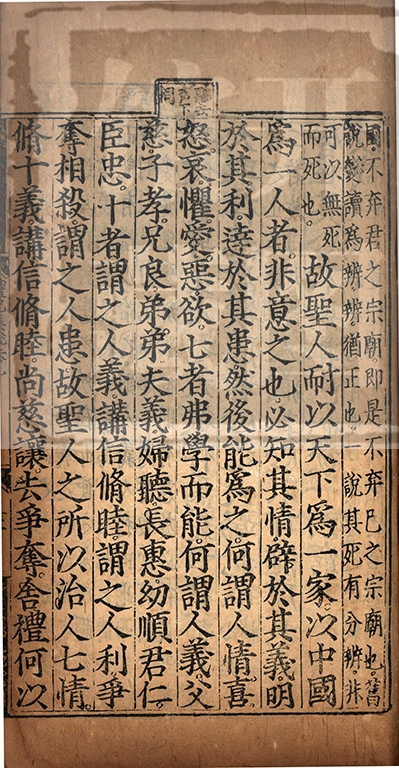 國。不弃君之宗廟。即是不弃巳之宗廟也。舊
說變讀爲辨。辨。猶正也。一說其死有分辨。非
可以無死
而死也。
故聖人耐以天下爲一家。以中國
爲一人者。非意之也。必知其情。辟於其義。明
於其利。達於其患。然後能爲之。何謂人情。喜
怒。哀懼愛惡欲。七者弗學而能。何謂人義。父
慈。子孝。兄良。弟弟。夫義。婦聽。長惠。幼順。君仁。
臣忠。十者謂之人義。講信脩睦。謂之人利。爭
奪相殺。謂之人患。故聖人之所以治人七情。
脩十義。講信脩睦。尚慈讓。去爭奪。舍禮何以